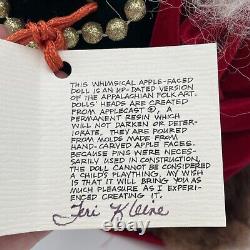 THIS WHIMSICAL APPLE-FACED
DOLL IS AN UP-DATED VERSION
OF THE APPALACHIAN FOLK ART.
DOLLS' HEADS ARE CREATED
FROM APPLECAST ©, A
PERMANENT RESIN WHICH
WILL NOT DARKEN OR DETER-
IORATE. THEY ARE POURED
FROM MOLDS MADE FROM
HAND-CARVED APPLE FACES.
BECAUSE PINS WERE NECES-
SARILY USED IN CONSTRUCTION,
THE DOLL CANNOT BE CONSIDERED
A CHILD'S PLAYTHING. MY WISH
IS THAT IT WILL BRING YOU AS
MUCH PLEASURE AS I EXPERI-
ENCED CREATING IT.
Teri Kleine